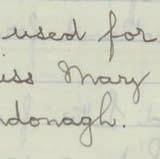 used for
iss Mary
ndonagh.